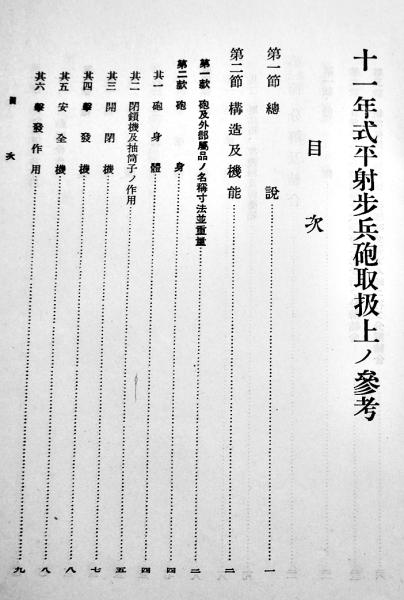 十一年式平射步兵砲取扱上ノ參考
目次
第一節 總說……一
第二節 構造及機能……二
第一款 砲及外部屬品ノ名稱寸法並重量……二
第二款 砲身……四
其一 砲身體……四
其二 閉鎖機及抽筒子ノ作用……五
其三 開閉機……七
其四 擊發機……八
其五 安全機……八
其六 擊發作用……九
目次